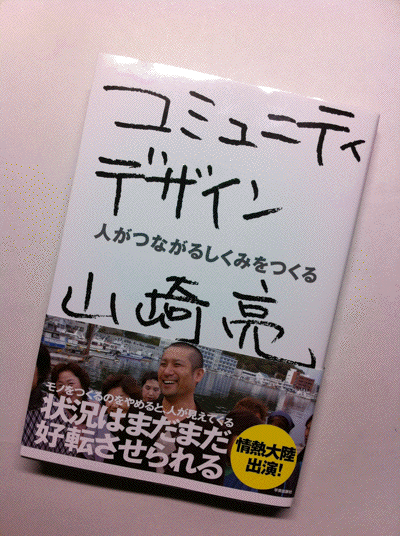 コミュニティ
デザイン
人がつながるしくみをつくる
山崎亮
モノをつくるのをやめると、人が見えてくる
状況はまだまだ
好転させられる
情熱大陸
出演!